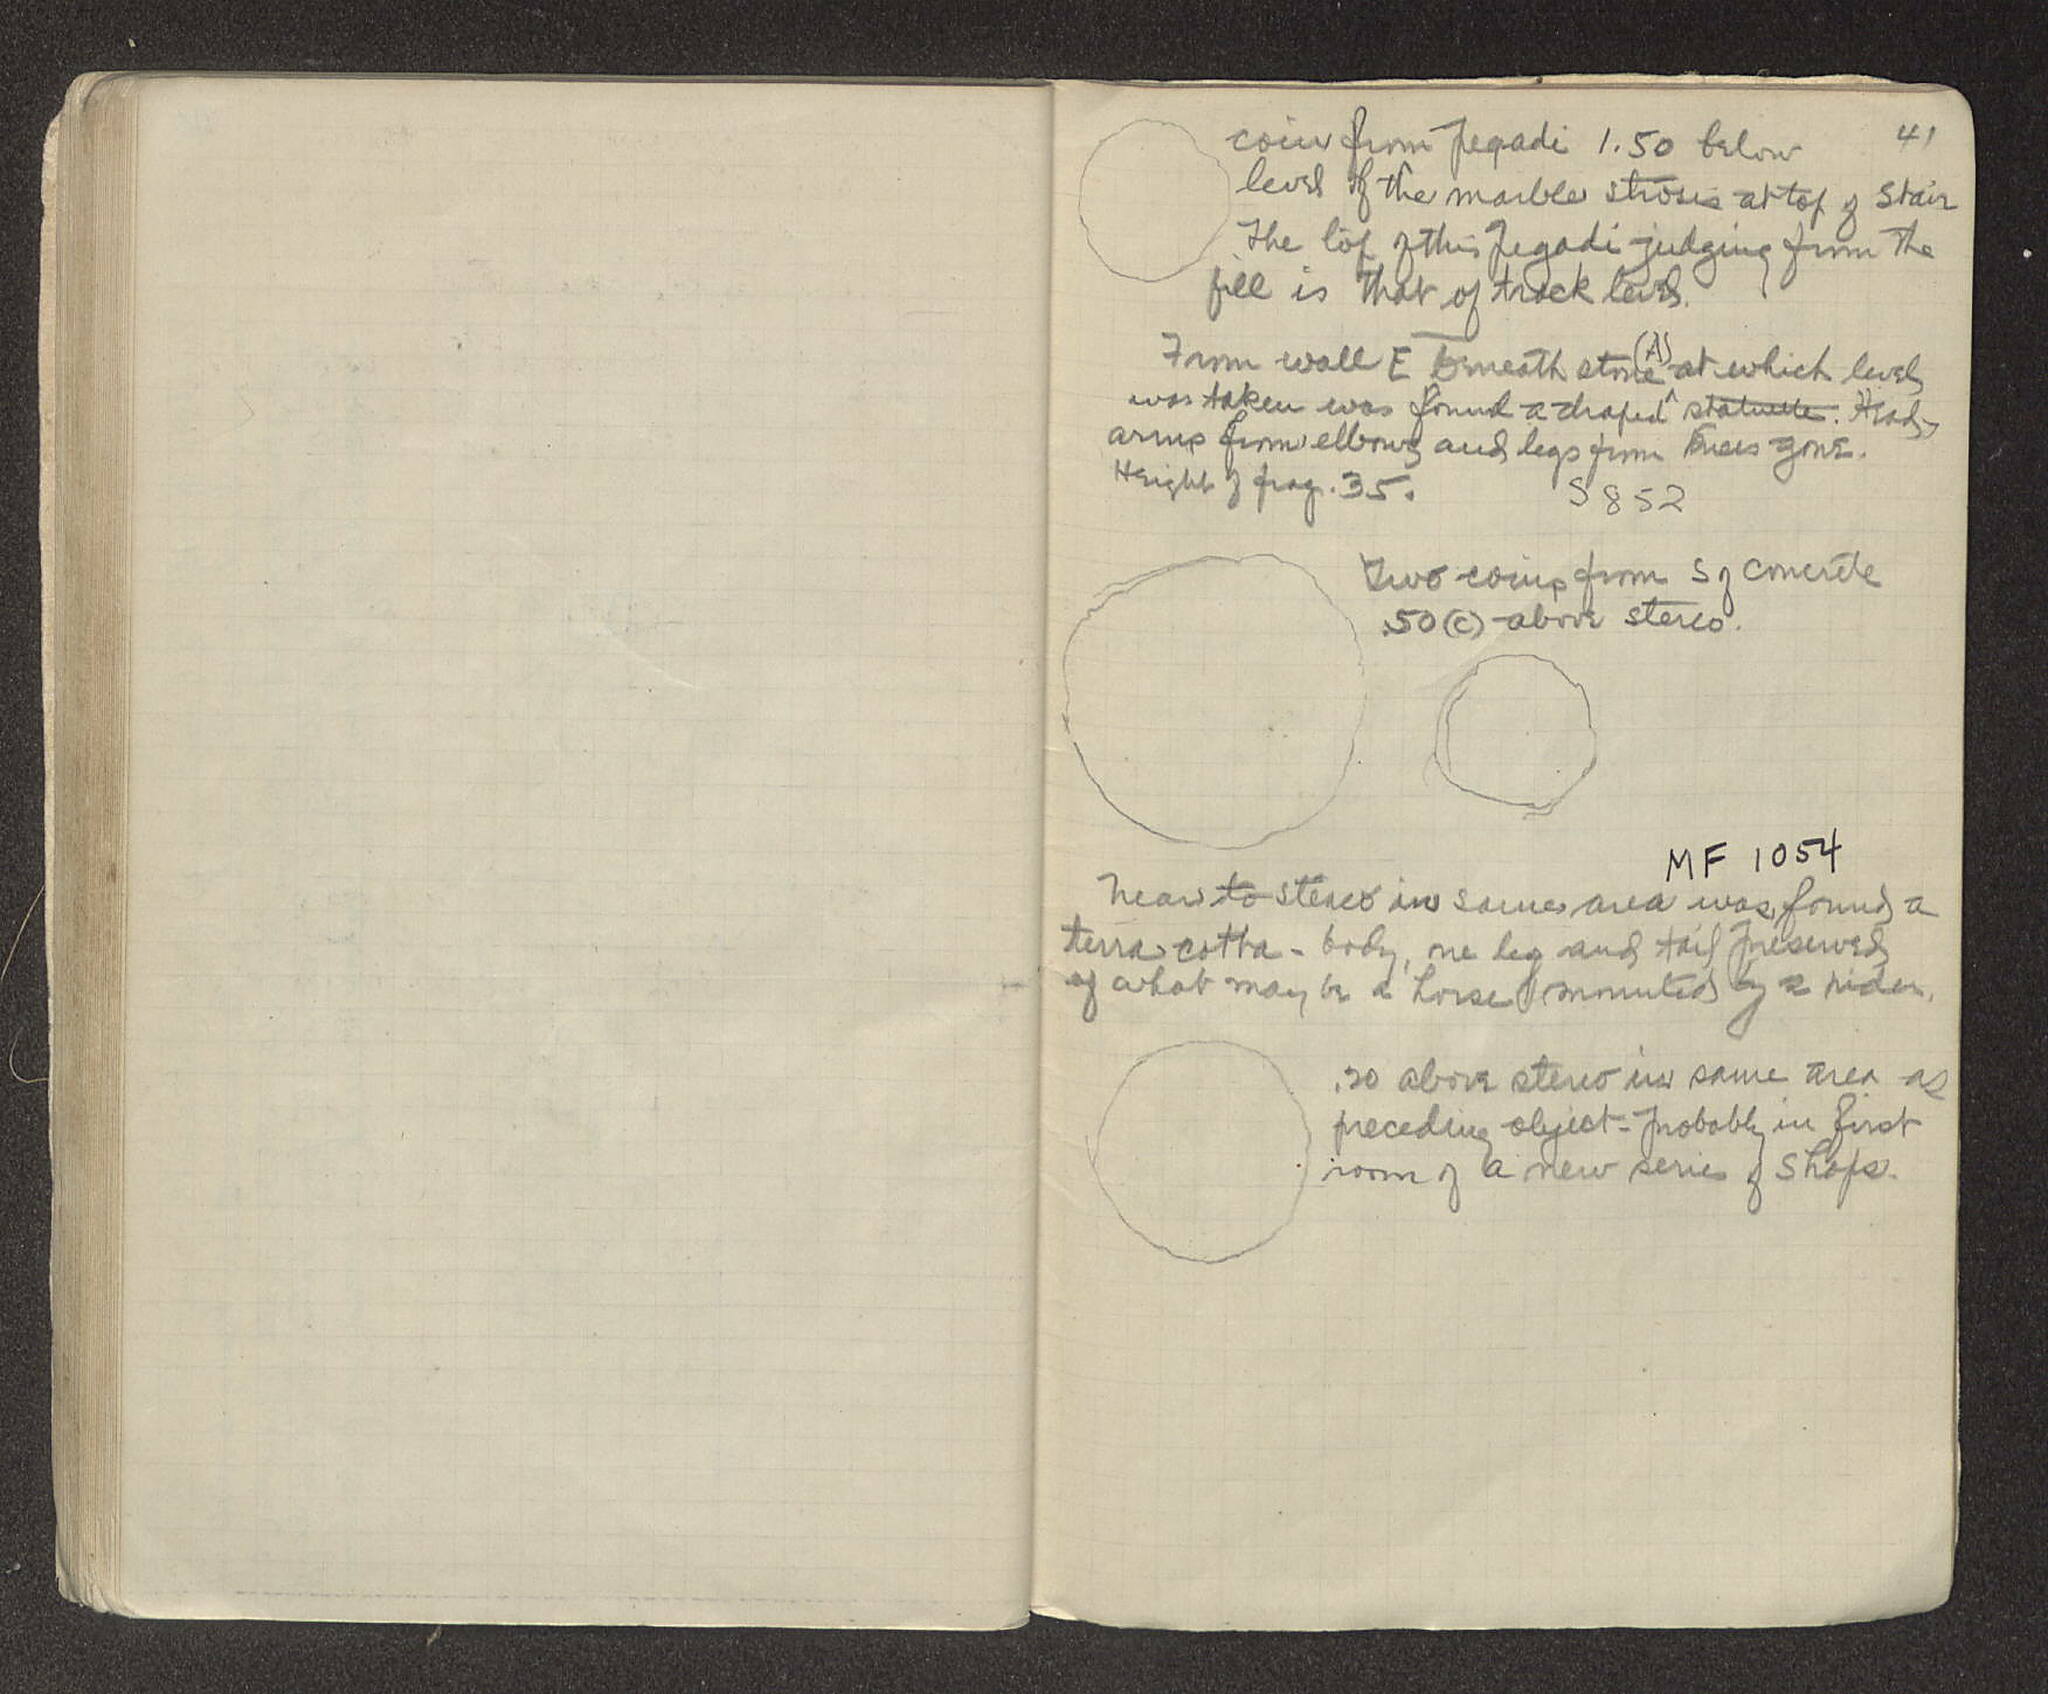 41
coin from Pegadi 1.50 below
level of the marble strosis at top of stair
The top of this Pegadi judging from the
fill is that of track level.
From wall E beneath stone (A) at which level
was taken was found a draped statuette. Head,
arms from elbows and legs from knees gone.
Height of frag. .35. S 852
Two coins from S of concrete
.50 (c) above stereo.
MF 1054
Near to stereo in same area was found a
terra cotta - body, one leg and tail preserved
of what may be a horse mounted by a rider.
.20 above stereo in same area as
preceding object - probably in first
room of a new series of shops.